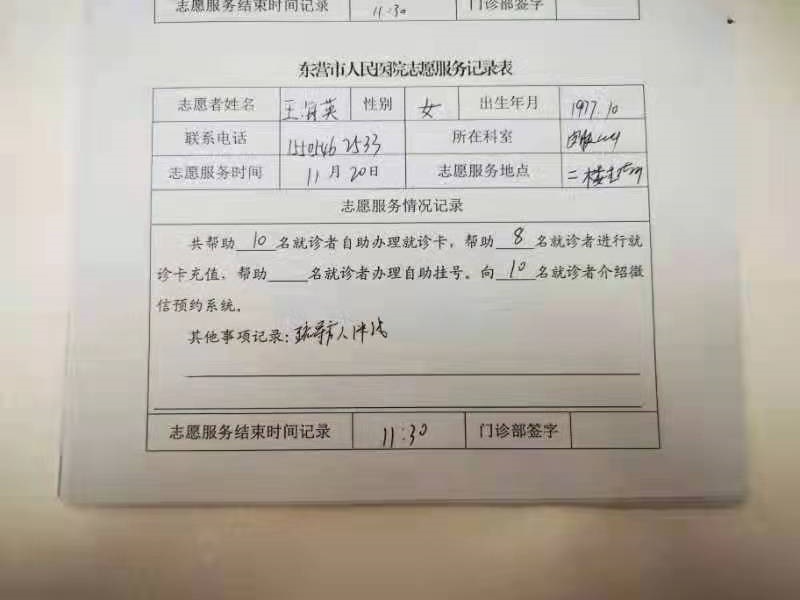 志愿服务结束时间记录 11:30 门诊部签字
东营市人民医院志愿服务记录表
志愿者姓名 王海英 性别 女 出生年月 1977.10
联系电话 15505462533 所在科室
志愿服务时间 11月20日 志愿服务地点 二楼
志愿服务情况记录
共帮助 10 名就诊者自助办理就诊卡，帮助 8 名就诊者进行就
诊卡充值，帮助 名就诊者办理自助挂号。向 10 名就诊者介绍微
信预约系统。
其他事项记录：疏导病人
志愿服务结束时间记录 11:30 门诊部签字